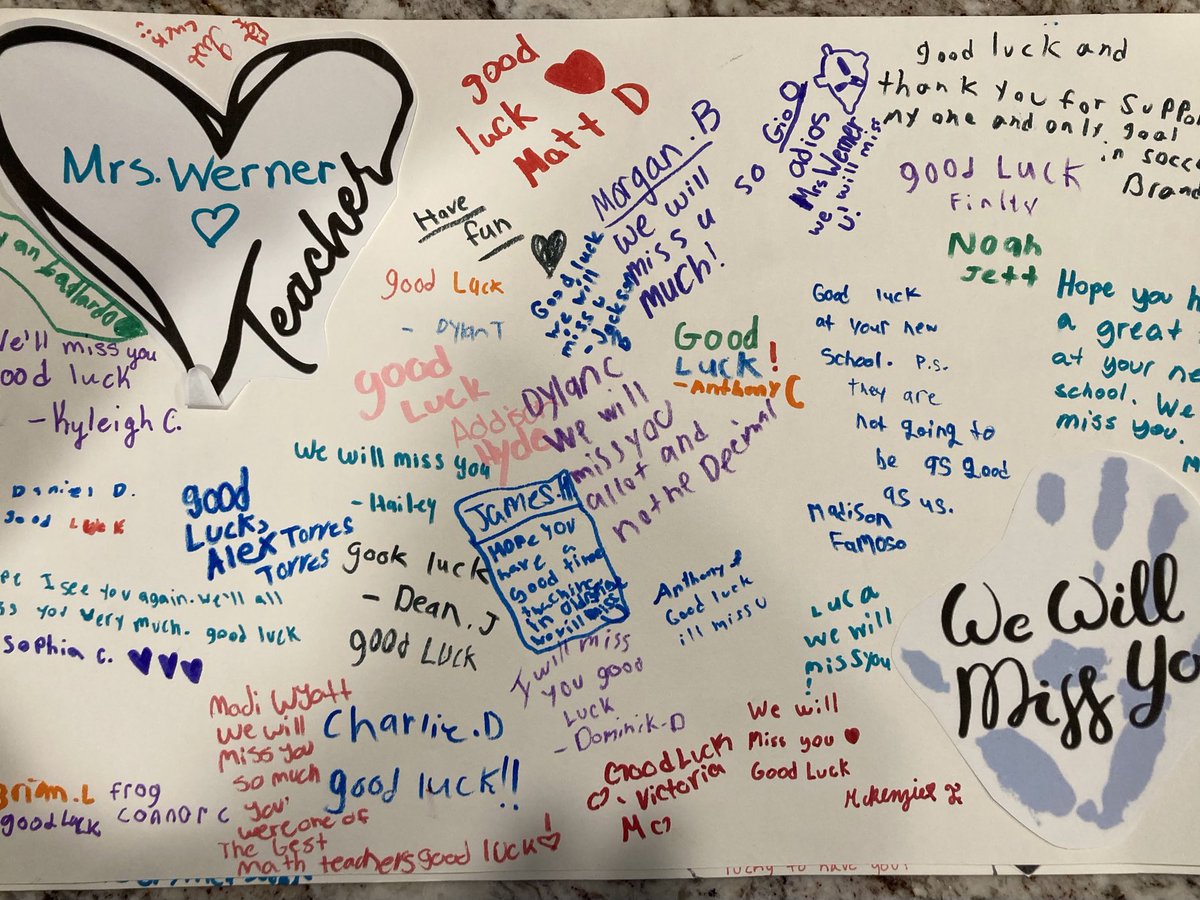 Mrs. Werner
Teacher
good
luck
Matt D
Have
fun
good Luck
- Dylan T
Good luck
we will
miss u
- Jackson
Morgan.B
we will
miss u
so
much!
GioO
adios
Mrs Werner
we will miss
u!
good luck and
thank you for suppor
my one and only goal
in socce
Brand
good Luck
Finlty
Noah
Jett
Good luck
at your new
School. P.S.
they are
not going to
be as good
as us.
Madison
Famoso
Hope you h
a great
at your ne
school. We
miss you.
M
we'll miss you
ood luck
- Kyleigh C.
good
Luck
Addison
Hyde
Good
Luck!
- Anthony C
Dylan C
We will
miss you
allot and
not the Decimal
we will miss you
- Hailey
Daniel D.
good Luck
good
Luck,
Alex Torres
Torres
gook luck
- Dean.J
good Luck
James.A
Hope you
have a
good time
teaching
in
we will miss
Anthony
Good luck
ill miss u
Luca
we will
miss you
!
I see you again. we'll all
ss you very much. good luck
Sophia C.
I will miss
you good
Luck
- Dominik-D
Madi Wyatt
we will
miss you
so much
you'
were one of
The Best
math teachers good luck!
Charlie.D
good luck!!
Good Luck
- Victoria
Mc
We will
Miss you
Good Luck
McKenzie
We Will
Miss Yo
Brian.L
good Luck
frog
Connor C
lucky to have you!